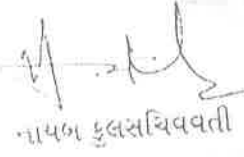 નાયબ કુલસચિવવતી